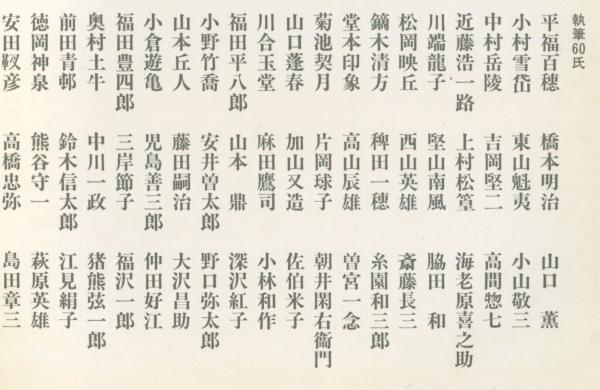 執筆60氏
平福百穂
小村雪岱
中村岳陵
近藤浩一路
川端龍子
松岡映丘
鏑木清方
堂本印象
菊池契月
山口蓬春
川合玉堂
福田平八郎
小野竹喬
山本丘人
小倉遊亀
福田豊四郎
奥村土牛
前田青邨
徳岡神泉
安田靫彦
橋本明治
東山魁夷
吉岡堅二
上村松篁
堅山南風
西山英雄
稗田一穂
高山辰雄
片岡球子
加山又造
麻田鷹司
山本　鼎
安井曽太郎
藤田嗣治
児島善三郎
三岸節子
中川一政
鈴木信太郎
熊谷守一
高橋忠弥
山口　薫
小山敬三
高間惣七
海老原喜之助
脇田　和
斎藤長三
糸園和三郎
曽宮一念
朝井閑右衛門
佐伯米子
小林和作
深沢紅子
野口弥太郎
大沢昌助
仲田好江
福沢一郎
猪熊弦一郎
江見絹子
萩原英雄
島田章三